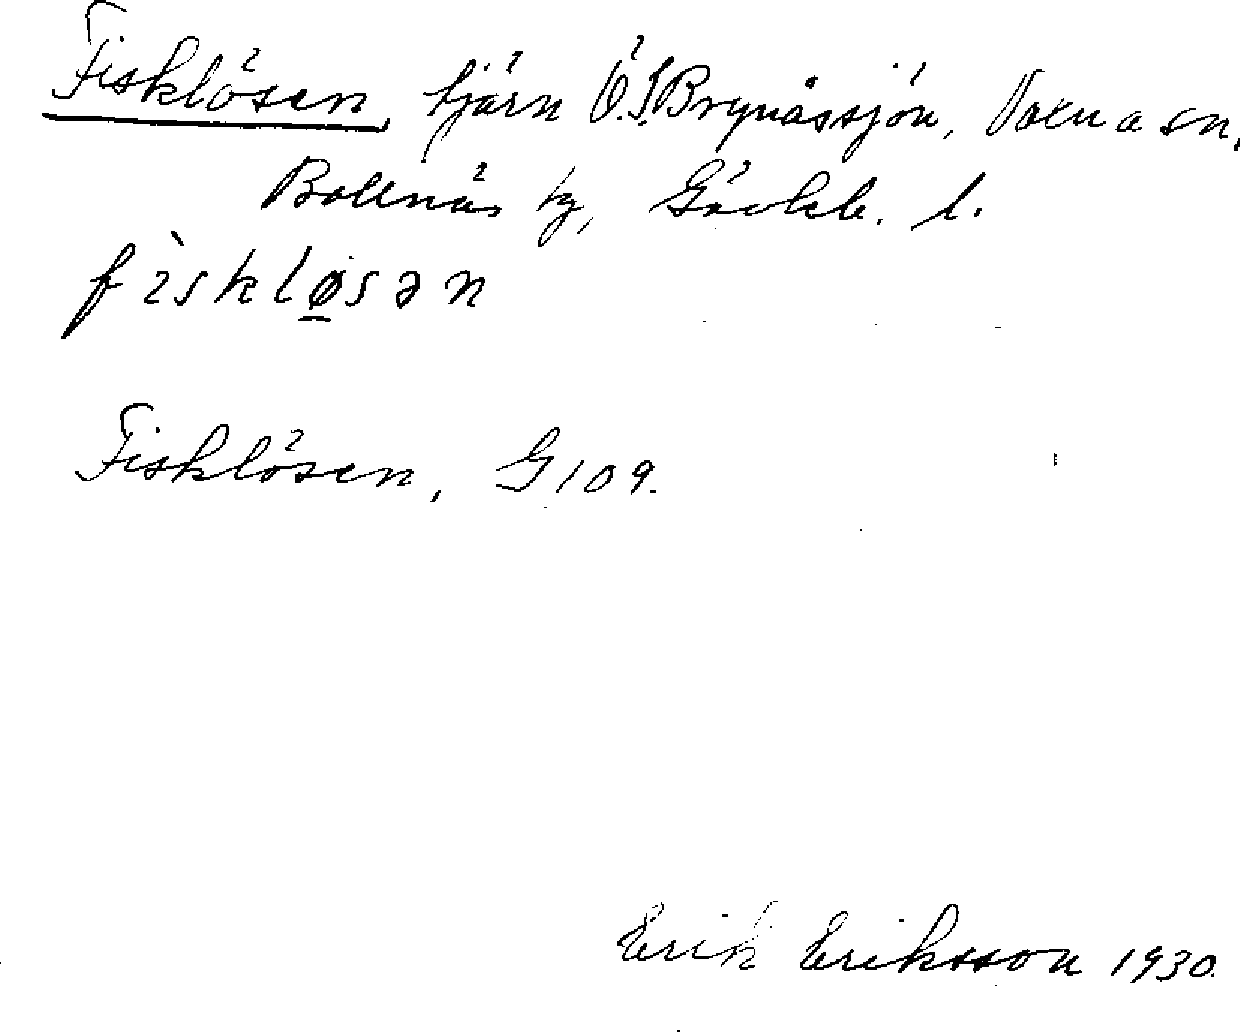 Fisklösen, tjärn Ö.S. Brynåssjön, Voxna sn,
Bollnäs tg, Gävleb. l.
fìskløsən
Fisklösen, G109.
Erik Eriksson 1930.